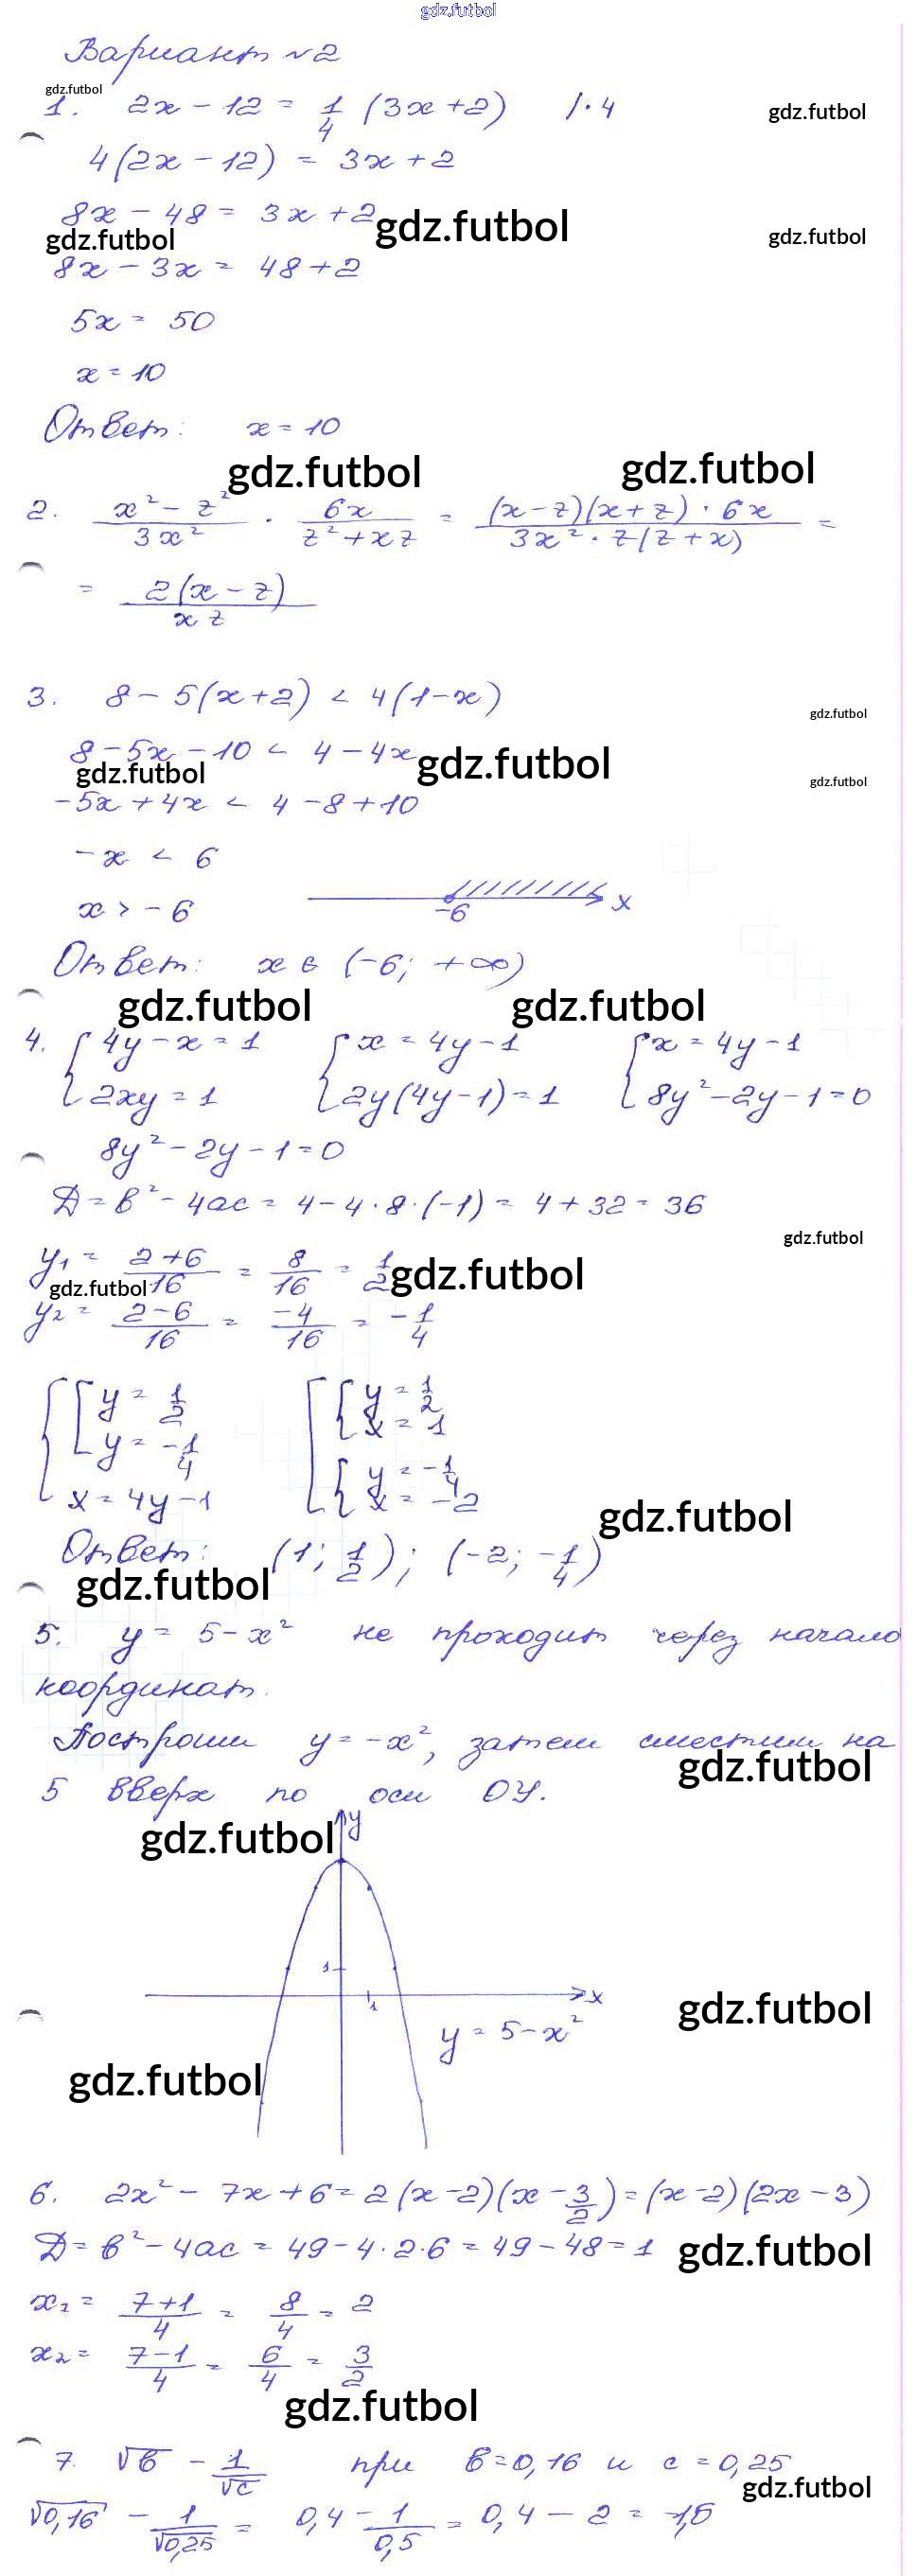 gdz.futbol
Вариант №2
gdz.futbol
1. 2x - 12 = 1/4 (3x + 2) / · 4 gdz.futbol
4(2x - 12) = 3x + 2
8x - 48 = 3x + 2 gdz.futbol
gdz.futbol gdz.futbol
8x - 3x = 48 + 2
5x = 50
x = 10
Ответ: x = 10
gdz.futbol gdz.futbol
2. (x² - z²)/(3x²) · 6x/(z² + xz) = ((x - z)(x + z) · 6x)/(3x² · z(z + x)) =
= 2(x - z)/(xz)
3. 8 - 5(x + 2) < 4(1 - x)
gdz.futbol
8 - 5x - 10 < 4 - 4x gdz.futbol
gdz.futbol gdz.futbol
-5x + 4x < 4 - 8 + 10
-x < 6
x > -6
-6 x
Ответ: x ∈ (-6; +∞)
gdz.futbol gdz.futbol
4. { 4y - x = 1 { x = 4y - 1 { x = 4y - 1
2xy = 1 2y(4y - 1) = 1 8y² - 2y - 1 = 0
8y² - 2y - 1 = 0
Д = в² - 4ac = 4 - 4 · 8 · (-1) = 4 + 32 = 36
gdz.futbol
y₁ = (2 + 6)/16 = 8/16 = 1/2 gdz.futbol
gdz.futbol
y₂ = (2 - 6)/16 = -4/16 = -1/4
{ [ y = 1/2 [ { y = 1/2
x = 1
y = -1/4 { y = -1/4
x = 4y - 1 x = -2
gdz.futbol
Ответ: (1; 1/2); (-2; -1/4)
gdz.futbol
5. y = 5 - x² не проходит через начало
координат.
Построим y = -x², затем сместим на
gdz.futbol
5 вверх по оси ОУ.
gdz.futbol y
1
1 x
gdz.futbol
y = 5 - x²
gdz.futbol
6. 2x² - 7x + 6 = 2(x - 2)(x - 3/2) = (x - 2)(2x - 3)
Д = в² - 4ac = 49 - 4 · 2 · 6 = 49 - 48 = 1 gdz.futbol
x₁ = (7 + 1)/4 = 8/4 = 2
x₂ = (7 - 1)/4 = 6/4 = 3/2
gdz.futbol
7. √в - 1/√c при в = 0,16 и c = 0,25
gdz.futbol
√0,16 - 1/√0,25 = 0,4 - 1/0,5 = 0,4 - 2 = -1,6